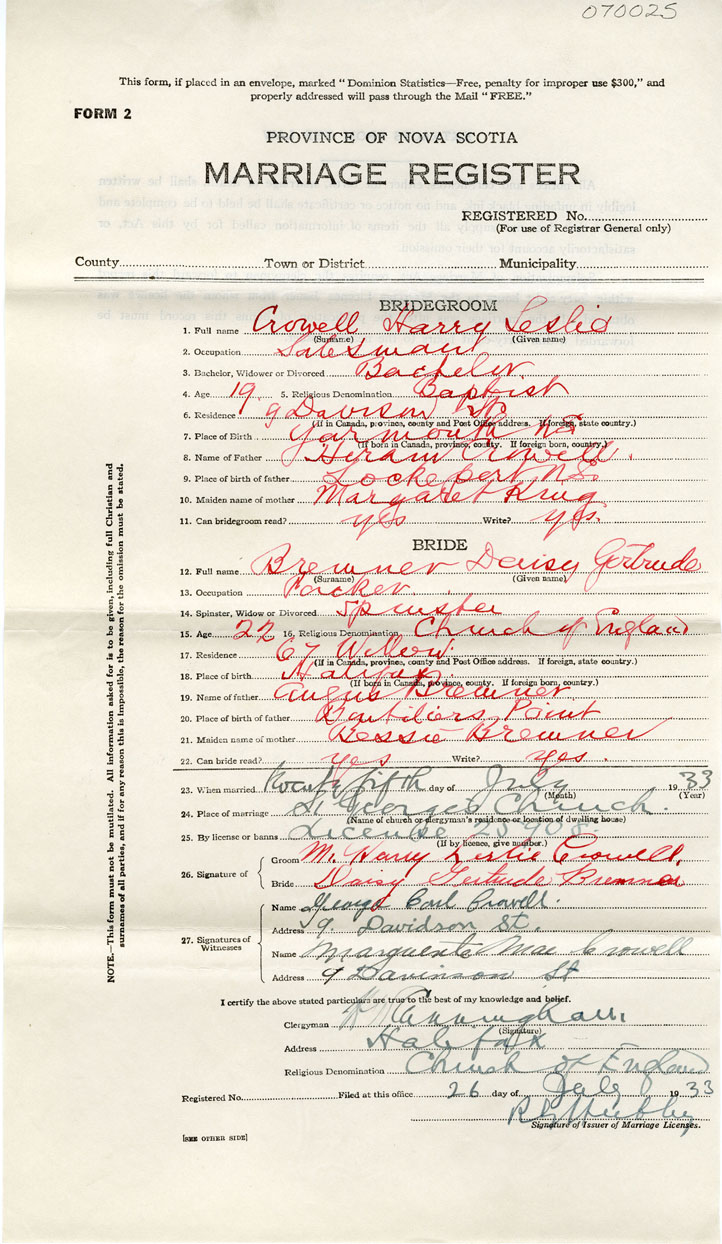 070025
This form, if placed in an envelope, marked "Dominion Statistics—Free, penalty for improper use $300," and
properly addressed will pass through the Mail "FREE."
FORM 2
PROVINCE OF NOVA SCOTIA
MARRIAGE REGISTER
REGISTERED No.
(For use of Registrar General only)
County Town or District Municipality
BRIDEGROOM
1. Full name Crowell Harry Leslie
(Surname) (Given name)
2. Occupation Salesman
3. Bachelor, Widower or Divorced Bachelor
4. Age 19. 5. Religious Denomination Baptist
6. Residence 9 Davison St.
(If in Canada, province, county and Post Office address. If foreign, state country.)
7. Place of Birth Yarmouth NS
(If born in Canada, province, county. If foreign born, country.)
8. Name of Father Hiram Crowell.
9. Place of birth of father Lockeport N.S.
10. Maiden name of mother Margaret Krug
11. Can bridegroom read? yes Write? yes.
BRIDE
12. Full name Bremner Daisy Gertrude
(Surname) (Given name)
13. Occupation Packer.
14. Spinster, Widow or Divorced Spinster
15. Age 22 16. Religious Denomination Church of England
17. Residence 67 Willow.
(If in Canada, province, county and Post Office address. If foreign, state country.)
18. Place of birth Halifax.
(If born in Canada, province, county. If foreign born, country.)
19. Name of father Angus Bremner
20. Place of birth of father Boutiliers Point
21. Maiden name of mother Bessie Bremner
22. Can bride read? yes Write? yes.
23. When married twenty fifth day of July 1933
(Month) (Year)
24. Place of marriage St George's Church.
(Name of church or clergyman's residence or location of dwelling house)
25. By license or banns License 25908.
(If by licence, give number.)
26. Signature of
Groom M. Harry Leslie Crowell.
Bride Daisy Gertrude Bremner
27. Signatures of Witnesses
Name George Carl Crowell.
Address 9. Davidson St.
Name Marguerite Mae Crowell
Address 9 Davinson St
I certify the above stated particulars are true to the best of my knowledge and belief.
Clergyman Cunningham
(Signature)
Address Halifax
Religious Denomination Church of England
Registered No. Filed at this office 26 day of July 1933
Signature of Issuer of Marriage Licenses.
[SEE OTHER SIDE]
NOTE.—This form must not be mutilated. All information asked for is to be given, including full Christian and
surnames of all parties, and if for any reason this is impossible, the reason for the omission must be stated.